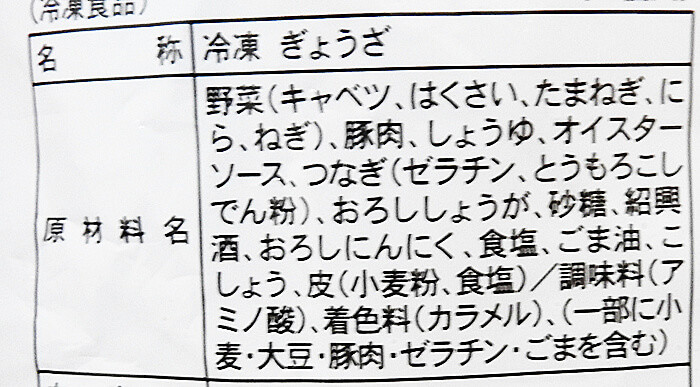 (冷凍食品)
名称 冷凍 ぎょうざ
原材料名
野菜(キャベツ、はくさい、たまねぎ、に
ら、ねぎ)、豚肉、しょうゆ、オイスター
ソース、つなぎ(ゼラチン、とうもろこし
でん粉)、おろししょうが、砂糖、紹興
酒、おろしにんにく、食塩、ごま油、こ
しょう、皮(小麦粉、食塩)/調味料(ア
ミノ酸)、着色料(カラメル)、(一部に小
麦・大豆・豚肉・ゼラチン・ごまを含む)